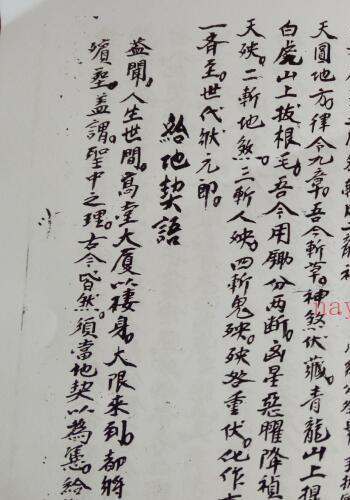 天圓地方。律令九章。吾今斬草。神煞伏藏。青龍山上提
白虎山上拔根毛。吾今用鋤分两斷。凶星惡曜降禎
天殃。二斬地煞。三斬人殃。四斬鬼殃。殃咎重伏。化作
一斉至。世代狀元郎。
給地契語
蓋聞。人生世間。寫堂大廈以棲身。大限來到。都將
墳塋。蓋謂。聖中之理。古今皆然。須當地契以為憑。給
nay